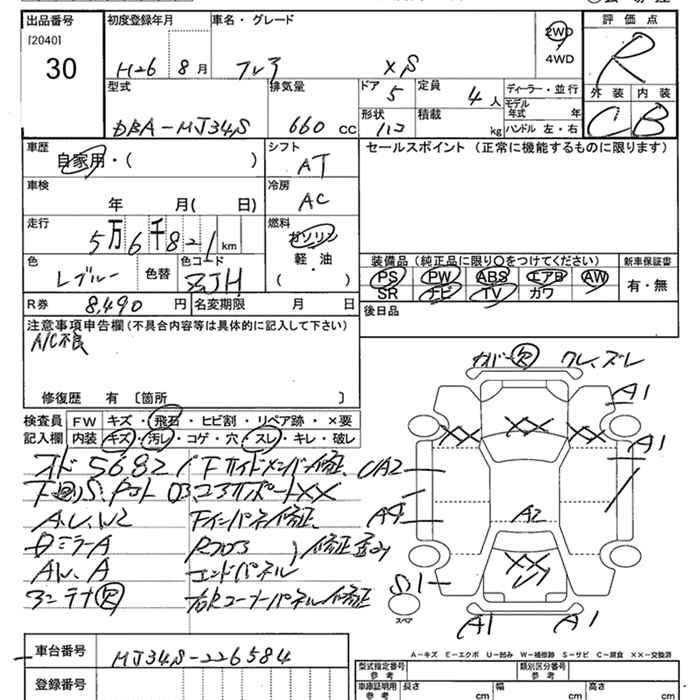 出品番号
[2040]
30
初度登録年月
H26 8月
車名・グレード
フレア XS
2WD
4WD
評価点
R
外装 内装
C B
型式
DBA-MJ34S
排気量
660 cc
ドア
5
定員
4 人
形状
ハコ
積載
kg
ディーラー・並行
モデル年式 年
ハンドル 左・右
車歴
自家用・( )
シフト
AT
車検
年 月( 日)
冷房
AC
走行
5万6千821km
燃料
ガソリン
軽・油
( )
色
Lブルー
色替
色コード
ZJH
R券 8,490 円
名変期限 月 日
セールスポイント (正常に機能するものに限ります)
装備品(純正品に限り○をつけてください)
PS PW ABS エアB AW
SR ナビ TV カワ
新車保証書
有・無
後日品
注意事項申告欄(不具合内容等は具体的に記入して下さい)
A/C不良
修復歴 有 〔箇所 〕
検査員記入欄
FW キズ・飛石・ヒビ割・リペア跡・×要
内装 キズ・汚レ・コゲ・穴・スレ・キレ・破レ
オド 5682
Fサイドメンバー修正
コアサポートXX
A.U.W2
Fインパネ修正
ミラーA
AW.A
エンドパネル
アンテナ欠
右Rコーナーパネル修正
カバー欠 ワレ、ズレ
A1
XX XX XX
A1
UA2
A4
A2
XX
S1
スペア
A1 A1
A-キズ E-エクボ U-凹み W-補修跡 S-サビ C-腐食 XX-交換済
車台番号 MJ34S-226584
登録番号
型式指定番号
参考
類別区分番号
参考
車庫証明用
参考
長さ cm
幅 cm
高さ cm